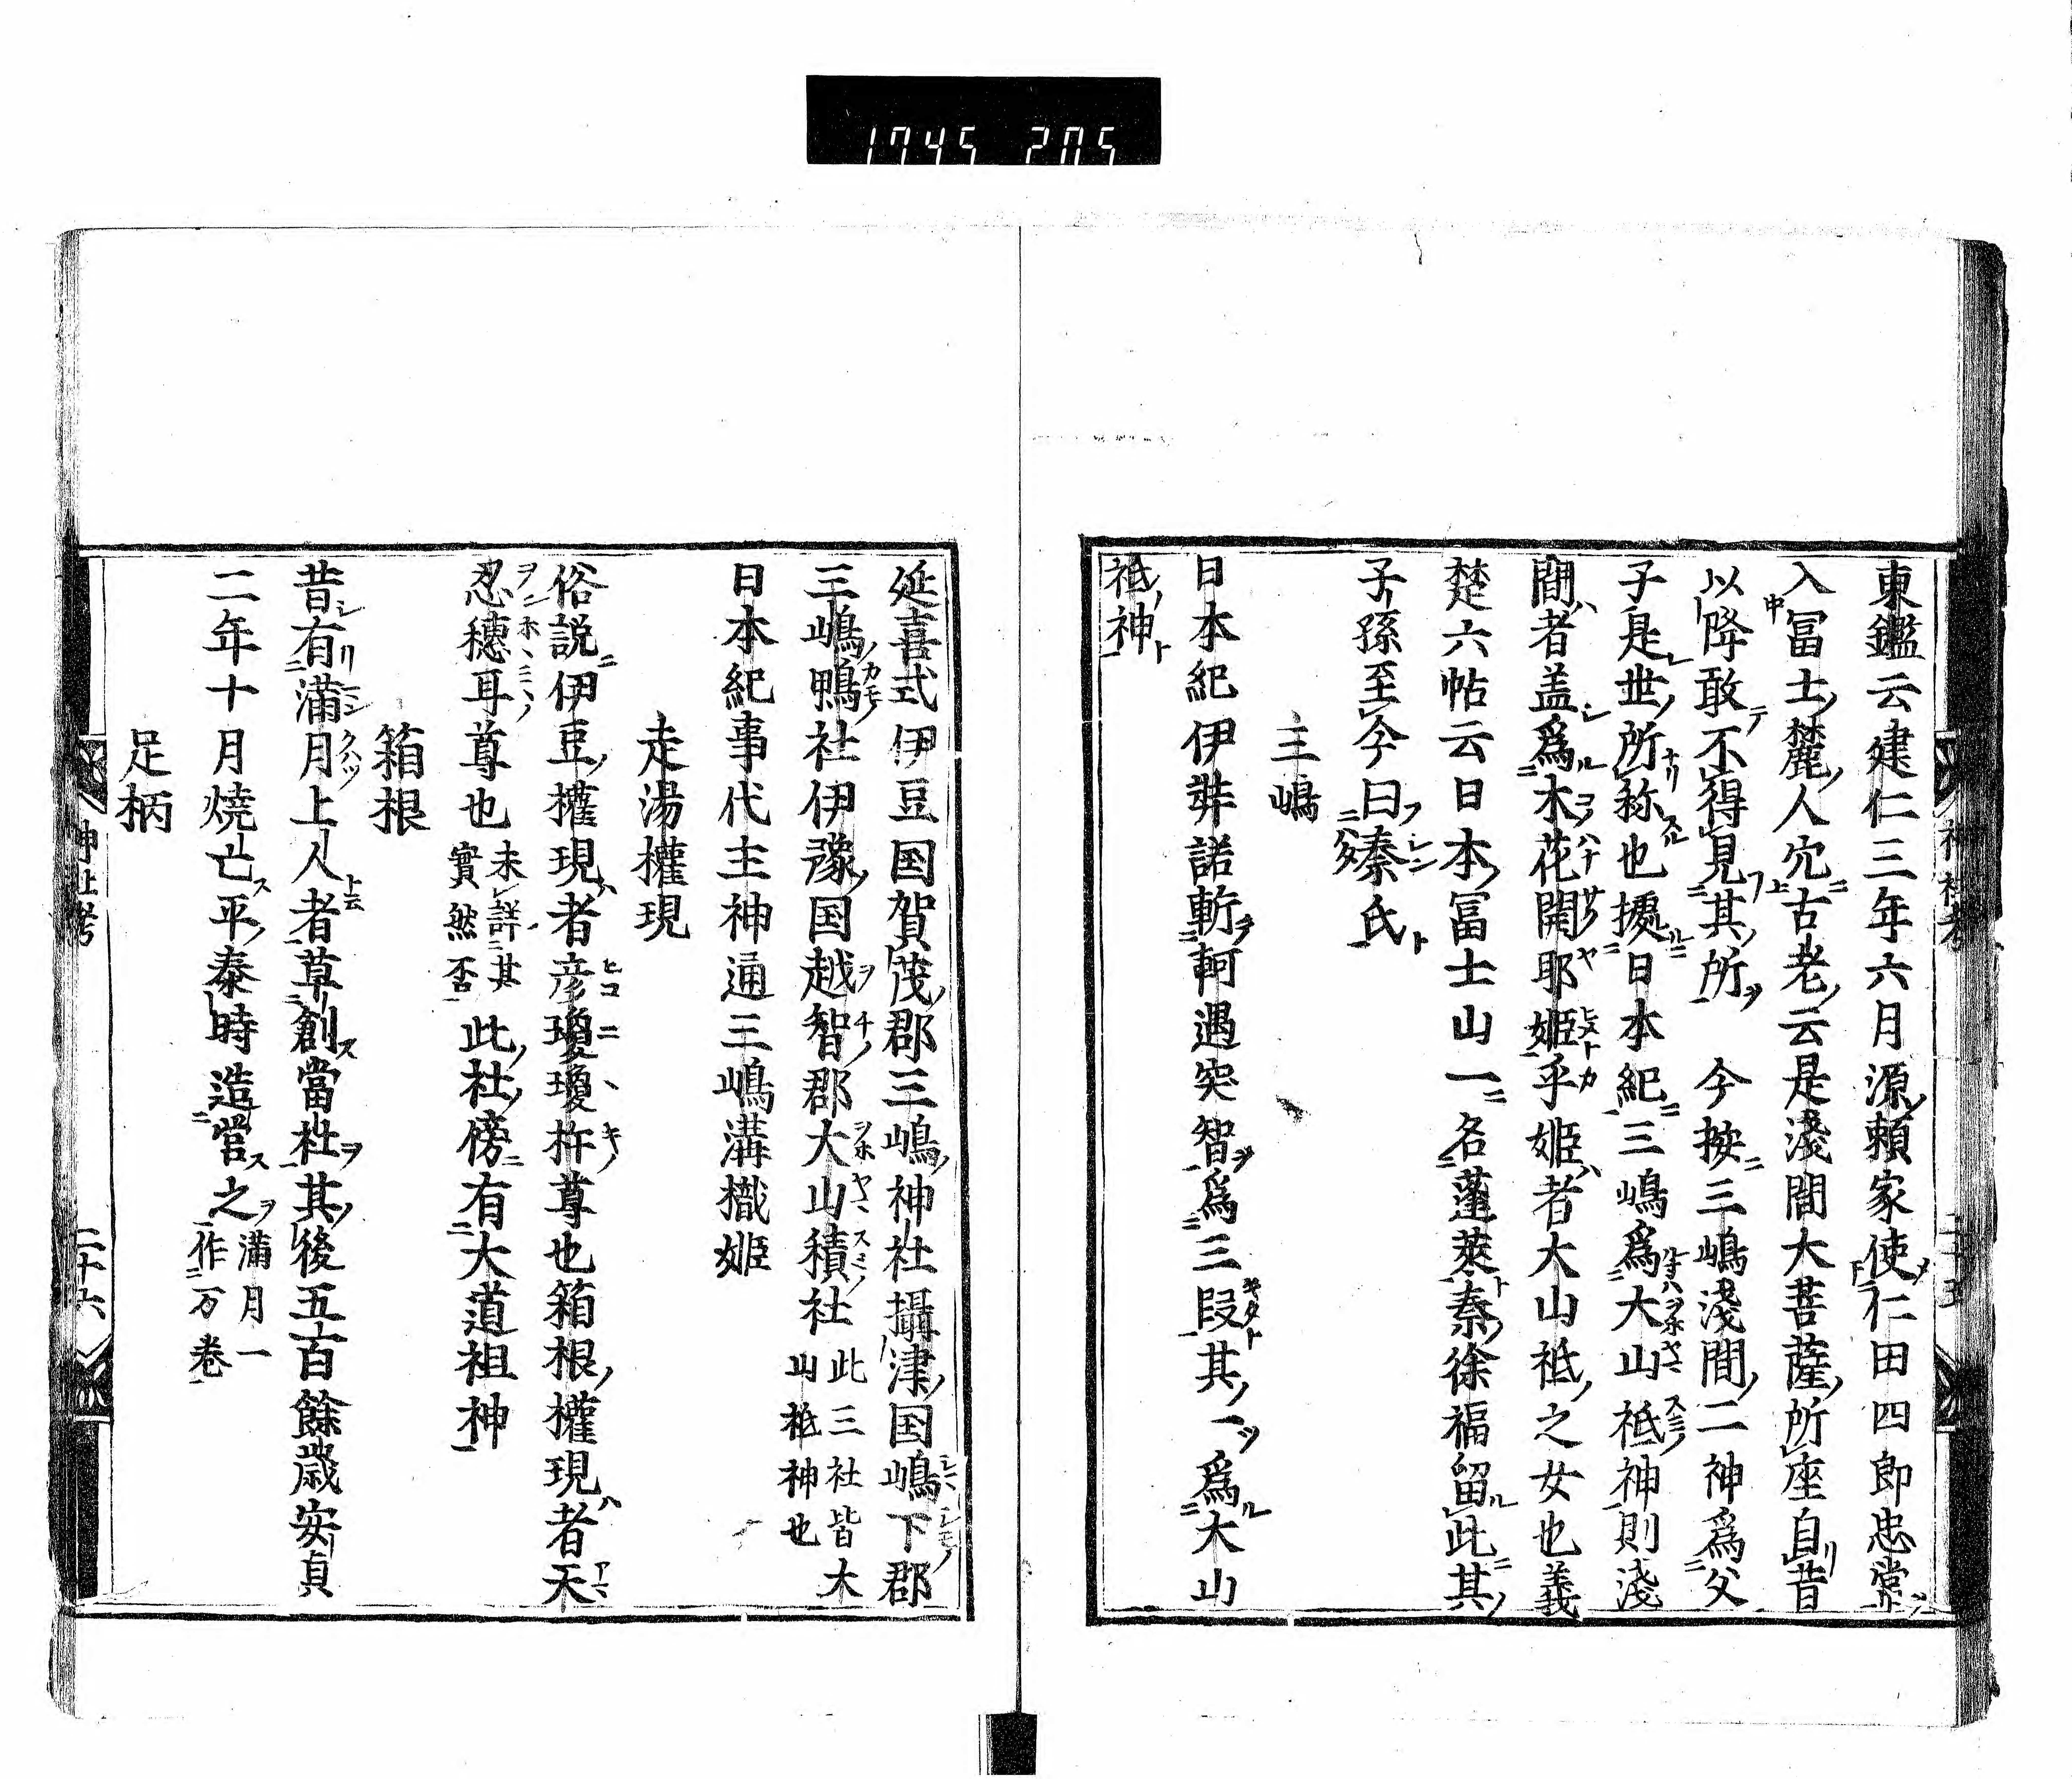 1745 205
東鑑云建仁三年六月源頼家使仁田四郎忠常
入冨士麓人穴古老云是淺間大菩薩所座自昔
以降敢不得見其所　今按三嶋淺間二神爲父
子是世所称也據日本紀三嶋爲大山祗神則淺
間者盖爲木花開耶姫乎姫者大山祗之女也義
楚六帖云日本冨士山一名蓬萊秦徐福留此其
子孫至今曰秦氏
三嶋
日本紀伊弉諾斬軻遇突智爲三段其一爲大山
祗神
延喜式伊豆国賀茂郡三嶋神社攝津国嶋下郡
三嶋鴨社伊豫国越智郡大山積社此三社皆大山祗神也
日本紀事代主神通三嶋溝樴姫
走湯權現
俗説伊豆權現者彦瓊瓊杵尊也箱根權現者天
忍穗耳尊也未詳其實然否此社傍有大道祖神
箱根
昔有滿月上人者草創當社其後五百餘歳安貞
二年十月燒亡平泰時造営之滿月一作万巻
足柄
神社考
二十六